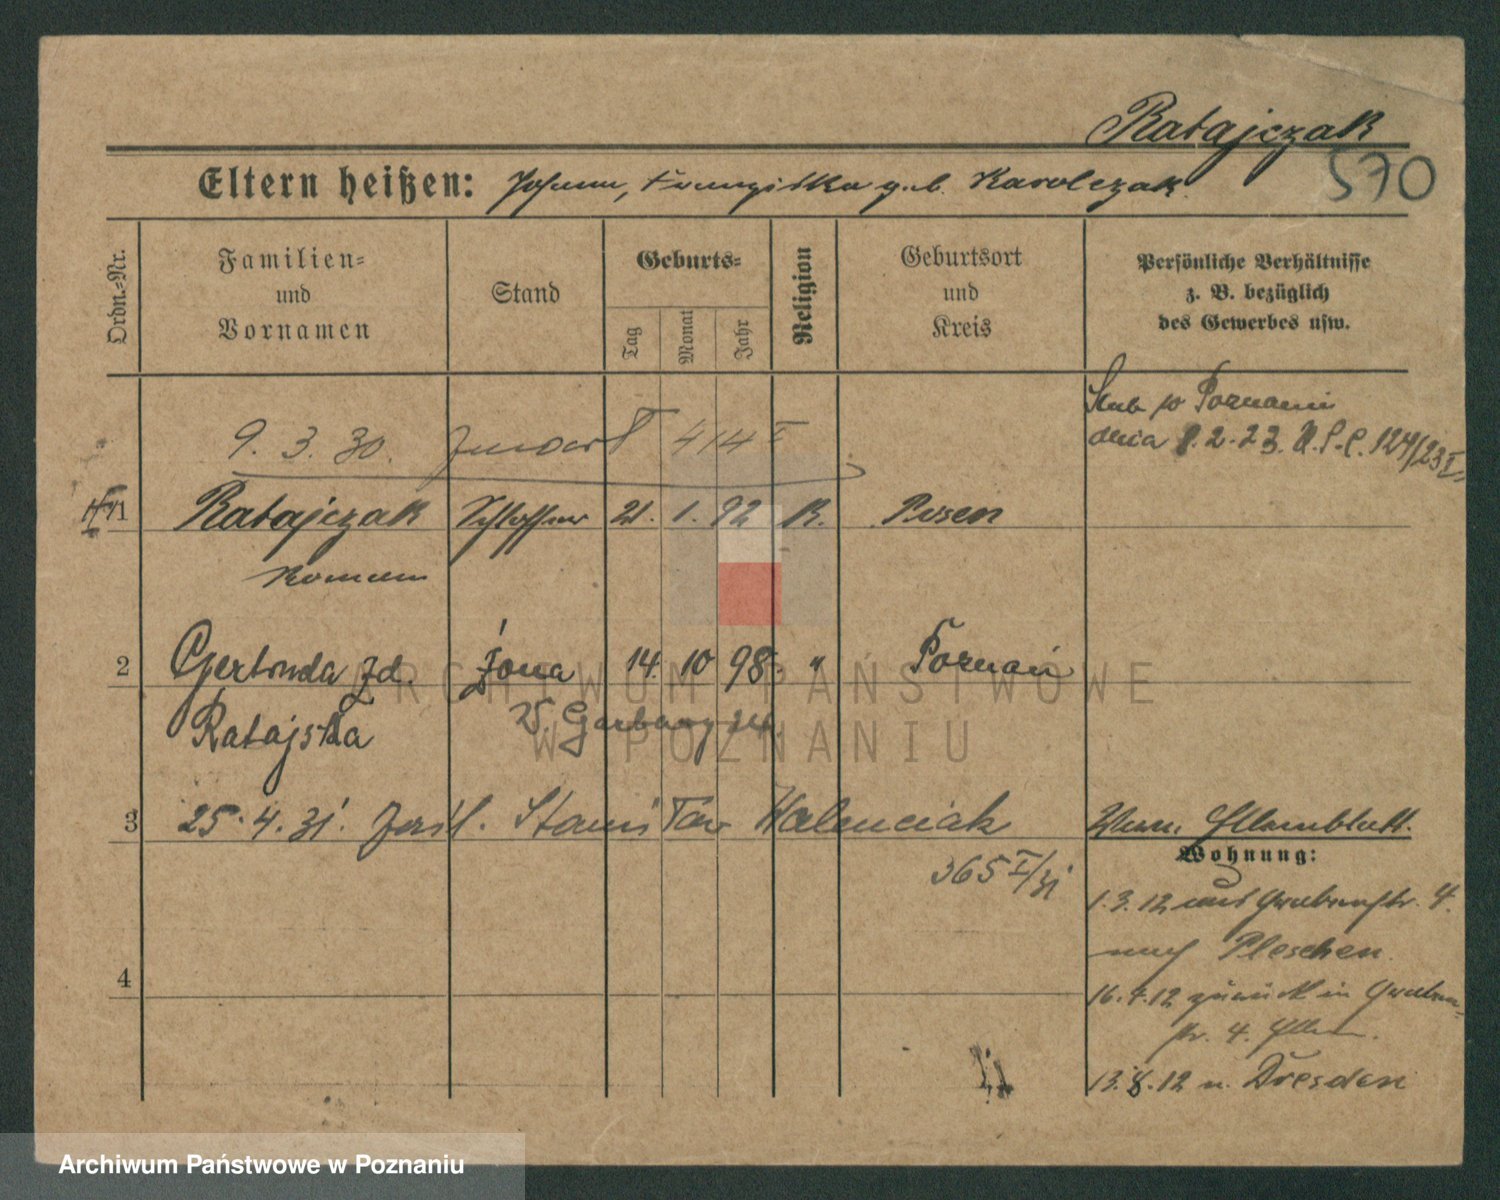 Ratajczak
570
Eltern heißen: Johann, Franziska geb. Karolczak
Ordn.-Nr.
Familien-
und
Vornamen
Stand
Geburts-
Tag
Monat
Jahr
Religion
Geburtsort
und
Kreis
Persönliche Verhältnisse
z. B. bezüglich
des Gewerbes usw.
Ślub w Poznaniu
dnia 2.23. U.S.C. 124/23 I
9. 3. 30. 414 I
1 Ratajczak Schlosser 21. 1. 92 K. Posen
Roman
2 Gertruda żona 14. 10 98. " Poznań
Ratajska W. Garbary
3 25. 4. 31. Stanisław Walenciak
365 I/31
Wohnung:
1.3.12 aus Grabenstr. 4.
nach Pleschen.
16.4.12 zurück in Graben-
str. 4.
13.8.12 n. Dresden
4
ARCHIWUM PAŃSTWOWE
W POZNANIU
Archiwum Państwowe w Poznaniu